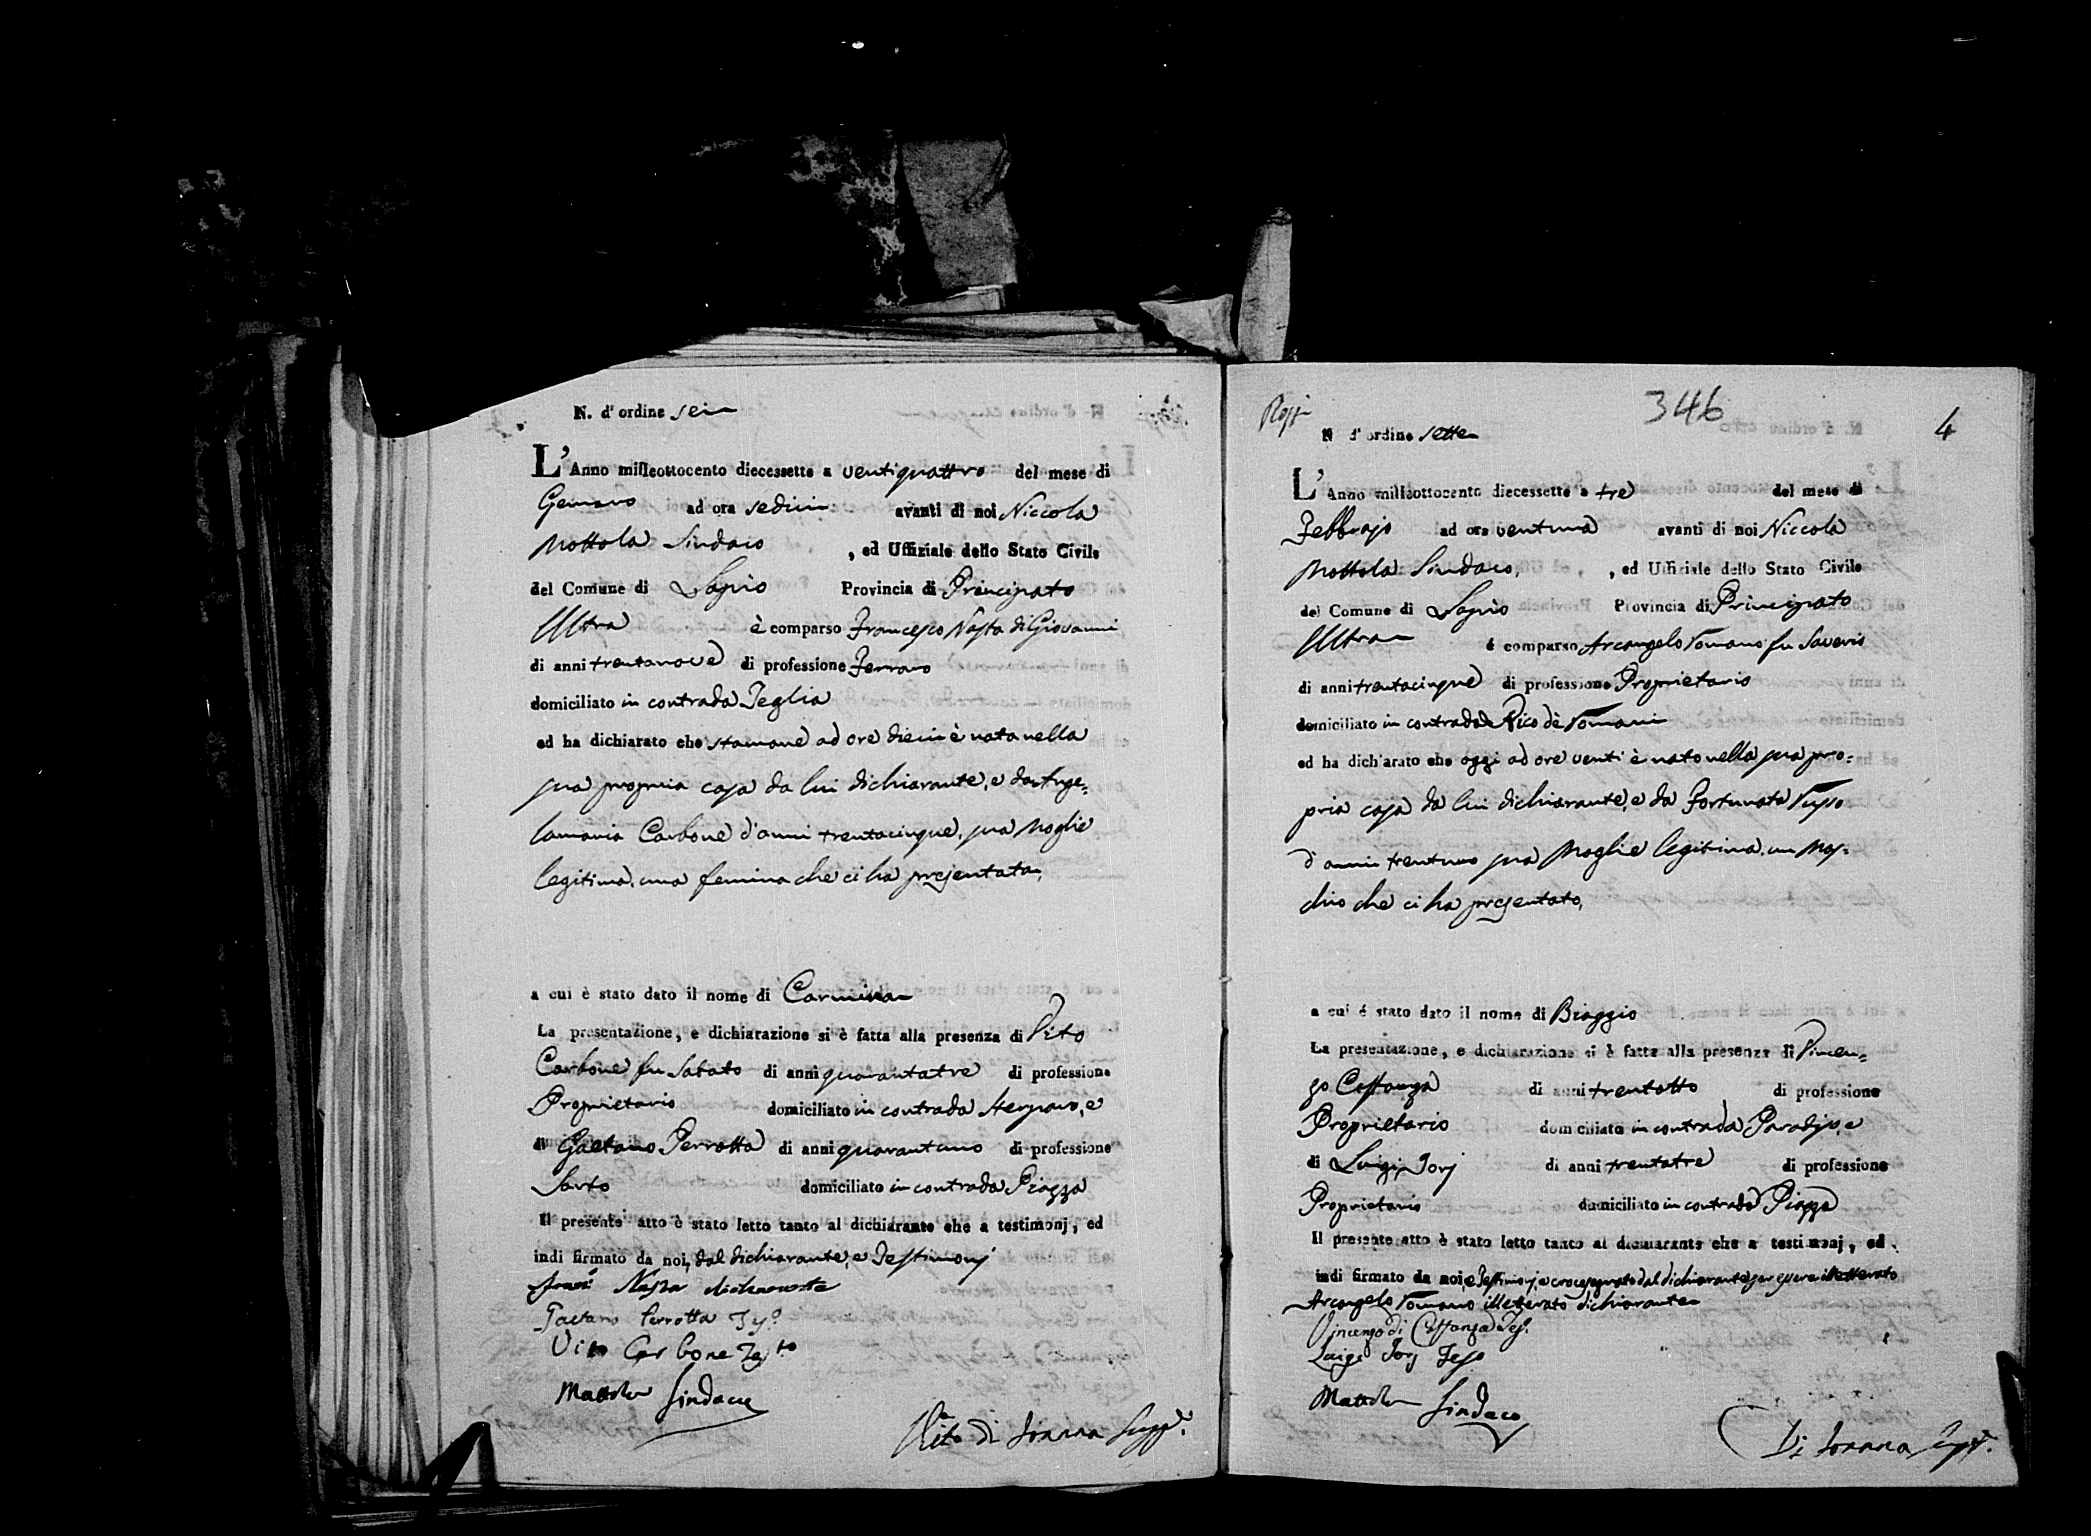 N. d'ordine sei
L'Anno milleottocento diecessette a ventiquattro del mese di
Gennaro ad ora sedici avanti di noi Niccola
Mottola Sindaco , ed Uffiziale dello Stato Civile
del Comune di Lapio Provincia di Principato
Ultra è comparso Francesco Nasta di Giovanni
di anni trentanove di professione Ferraro
domiciliato in contrada Teglia
ed ha dichiarato che stamane ad ore dieci è nata nella
sua propria casa da lui dichiarante, e da Ange=
lamaria Carbone d'anni trentacinque, sua Moglie
legittima, una femina che ci ha presentata,
a cui è stato dato il nome di Carmina
La presentazione, e dichiarazione si è fatta alla presenza di Vito
Carbone fu Sabato di anni quarantatre di professione
Proprietario domiciliato in contrada , e
di Gaetano Perrotta di anni quarantuno di professione
Sarto domiciliato in contrada Piazza
Il presente atto è stato letto tanto al dichiarante che a testimonj, ed
indi firmato da noi, dal dichiarante, e Testimonj
Nasta dichiarante
Gaetano Perrotta
Vito Carbone
Mottola Sindaco
Vito di Ioanna
346
4
N d'ordine sette
L'Anno milleottocento diecessette a tre del mese di
Febbrajo ad ora ventuna avanti di noi Niccola
Mottola Sindaco, , ed Uffiziale dello Stato Civile
del Comune di Lapio Provincia di Principato
Ultra è comparso Arcangelo Romano fu Saverio
di anni trentacinque di professione Proprietario
domiciliato in contrada Vico de Romani
ed ha dichiarato che oggi ad ore venti è nato nella sua pro=
pria casa da lui dichiarante, e da Fortunata Russo
d'anni trentuno sua Moglie legittima, un Mas=
chio che ci ha presentato,
a cui è stato dato il nome di Biaggio
La presentazione, e dichiarazione si è fatta alla presenza di Vincen=
zo di anni trentotto di professione
Proprietario domiciliato in contrada Paradiso, e
di Luigi Iorj di anni trentatre di professione
Proprietario domiciliato in contrada Piazza
Il presente atto è stato letto tanto al dichiarante che a testimonj, ed
indi firmato da noi, e Testimonj, e crocesegnato dal dichiarante per essere illetterato
Arcangelo Romano illetterato dichiarante
Vincenzo di
Luigi Iorj
Mottola Sindaco
Di Ioanna